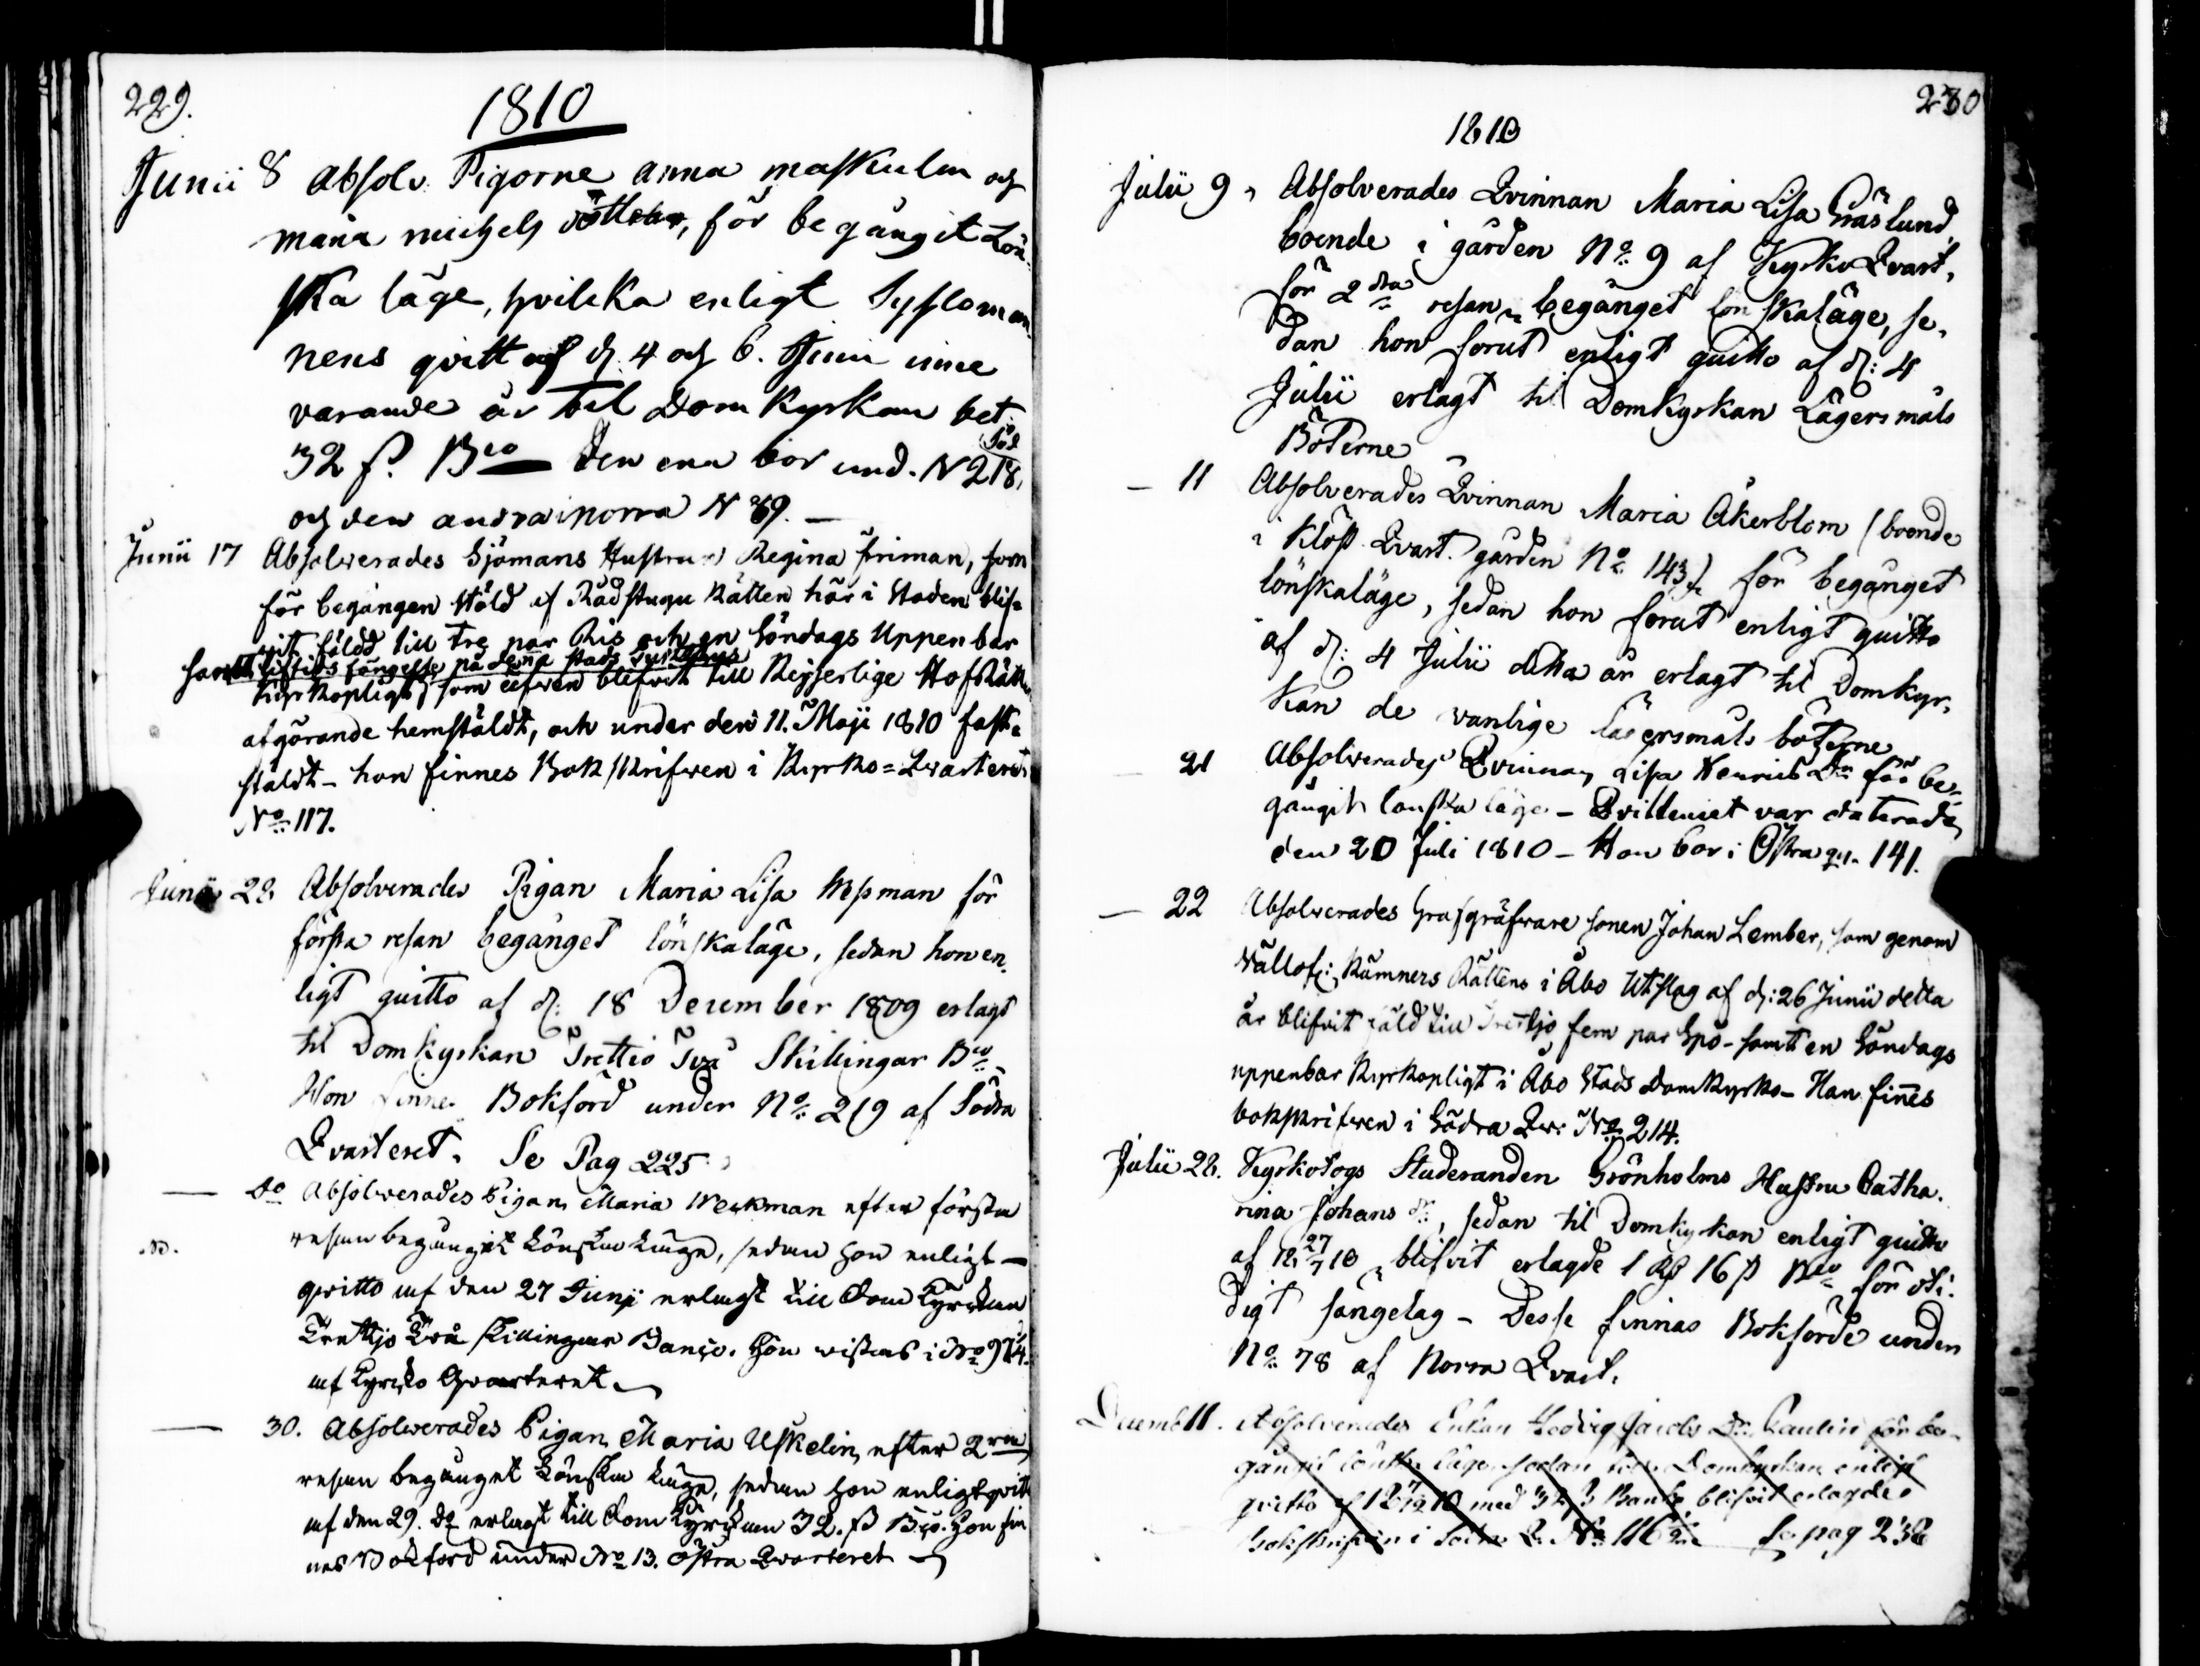 229.
1810
Junii 8 Absolv. Pigorne Anna Maskulin och
Maria Michels döttrar, för begångit Lön-
ska läge, hvilcka enligt Sysloman-
nens qvitt af d. 4 och 6. Junii inne
varande år til Domkyrkan bet.
32 ß. Bco Den ena bor und. N 218, Söd
och den andra i norra N 89. —
Junii 17 Absolverades Sjömans Hustrun Regina Friman, som
för begången stöld af Rådstugu Rätten här i Staden blif-
vit fäldd till tre par Ris och en Söndags Uppenbar
samt lifstids fängelse på denna stads
Kyrkopligt, som äfwen blifvit till Kejserlige Hofrätten
afgörande hemstäldt, och under den 11. Maji 1810 fast-
stäldt – hon finnes Bokskrifwen i Kyrko-Qvarteret
No 117.
Junii 28 Absolverades Pigan Maria Lisa Wepman för
första resan begånget lönskaläge, sedan hon en-
ligt quitto af d: 18 December 1809 erlagt
til Domkyrkan Trettio Två Skillingar Bco –
Hon finnes Bokförd under No 219 af Södra
Qvarteret. Se Pag 225
— do Absolverades Pigan Maria Weckman efter första
resan begångit Lönska Läge, sedan hon enligt —
qvitto af den 27 Junji erlagt till Dom Kyrckan
Trettjo Två skillingar Banco. Hon vistas i No 97¼
af Kyrcko Qvarteret.
— 30. Absolverades Pigan Maria Uskelin, efter 2ra
resan begånget Lönska Läge, sedan hon enligt qvitt
af den 29. do erlagt till Dom Kyrckan 32. ß Bco. Hon fin
nes Bokförd under No 13. Östra Qvarteret
230
1810
Julii 9, Absolverades Qvinnan Maria Lisa Gräslund
boende i gården No 9 af Kyrko Qvart.
för 2dra resan begånget lönskaläge, se-
dan hon förut enligt quitto af d: 4
Julii erlagt til Domkyrkan Lägersmåls
Böterne
— 11 Absolverades Qvinnan Maria Åkerblom (boende
i Klöst. Qvart. gården No 143) för begånget
lönskaläge, sedan hon förut enligt quitto
af d: 4 Julii detta år erlagt til Domkyr-
kan de vanlige lägersmåls böterne
— 21 Absolverades Qvinnan Lisa Henrics Dr för be-
gångit lönska läge – Qvitteniet var daterade
den 20 Juli 1810 – Hon bor i Östra qv. 141.
— 22 Absolverades Grafgräfvare sonen Johan Lember, som genom
Vällofl: Kämners Rättens i Åbo Utslag af d: 26 Junii detta
år blifvit fäld till Trettjo fem par Spö - samt en Söndags
uppenbar Kyrkopligt i Åbo Stads Domkyrko – Han finnes
bokskrifwen i Södra Qv: No 214.
Julii 28. Kyrkotogs Studeranden Grönholms Hustru Catha-
rina Johans dr, sedan til Domkyrkan enligt quitto
af 18 27/7 10 blifvit erlagde 1 Rd 16 ß Bco för oti-
digt sängelag – Desse finnas Bokförde under
No 78 af Norra Qvart.
Decemb 11. Absolverades Enkan Hedvig Jacobs Dr Paulin för be-
gångit lönska läge, sedan till Domkyrkan enligt
qvitto af 18 7/12 10 med 32 ß Banko blifvit erlagde
Bokskrifven i Södra Q. No 116 se pag 232